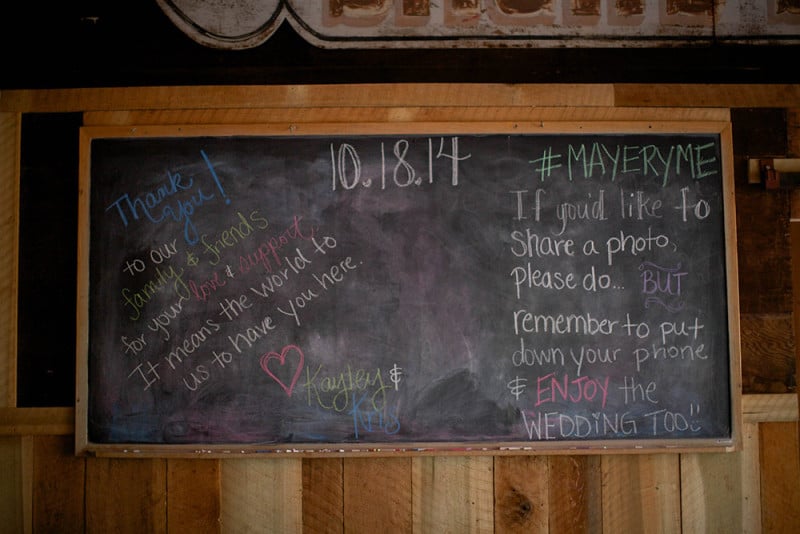 10.18.14
Thank
you!
to our
family & friends
for your love & support.
It means the world to
us to have you here.
Kayley &
Kris
#MAYERYME
If you'd like to
share a photo,
please do... BUT
remember to put
down your phone
& ENJOY the
WEDDING TOO!